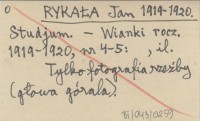 0
RYKAŁA Jan 1919-1920.
Studjum. - Wianki rocz.
1919-1920, nr 4-5: , il.
Tylko fotografia rzeźby
(głowa górala).